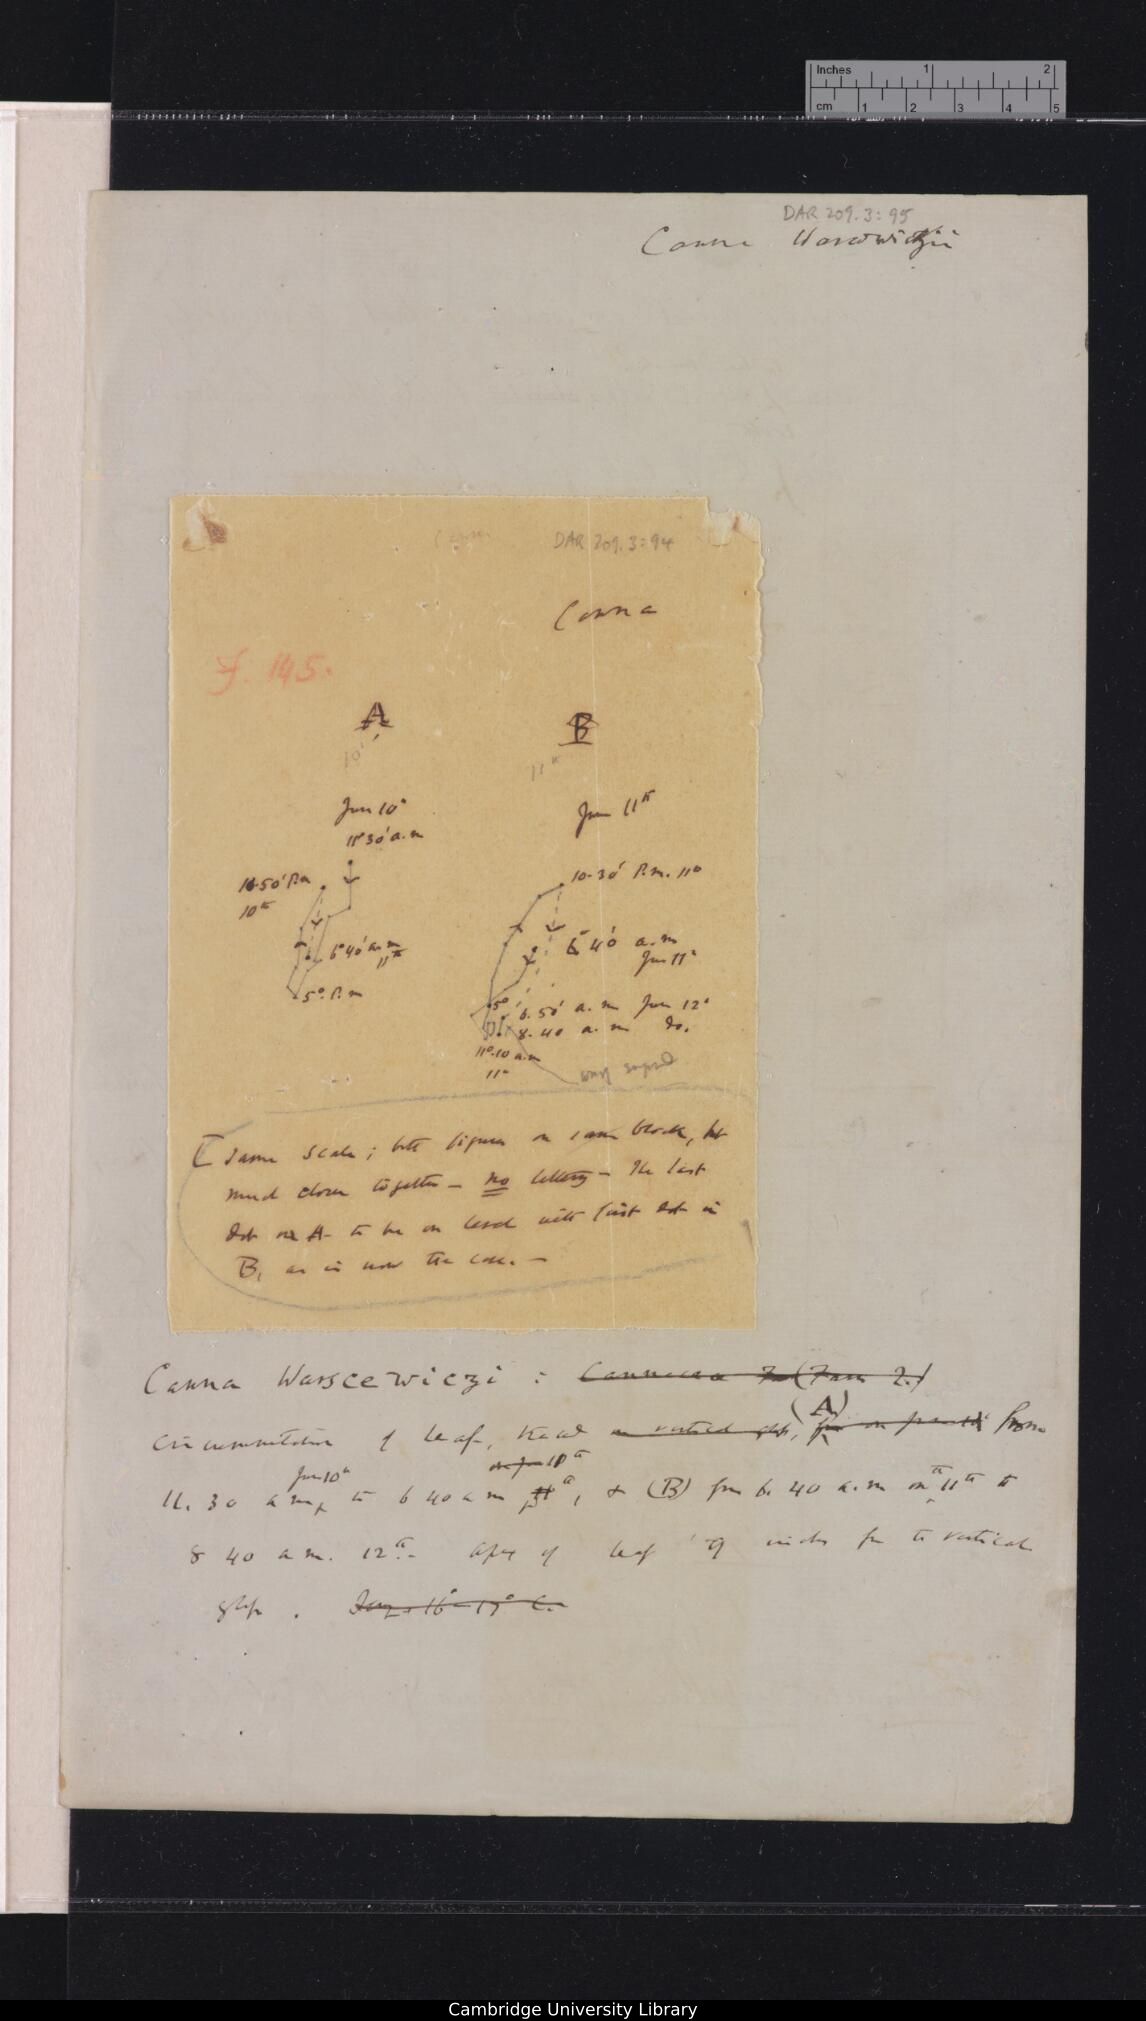 Inches 1 2
cm 1 2 3 4 5
DAR 209.3:95
Canna
DAR 209.3:94
Canna
f. 145.
A
B
10
11th
Jun 10°
11° 30' a.m
Jun 11th
10.50' P.m
10th
10.30' P.m. 11°
6° 40' a.m
11th
6° 40' a.m
Jun 11°
5° P.m
5°
6.50' a.m Jun 12°
8.40 a.m do.
11°.10 a.m
11°
[Same scale; both figures on same block, but
much closer together — no letters — The last
dot on A to be on level with first dot in
B, as is now the case. —
Canna Warscewiczi : Cannaceæ (Fam 2.)
(A)
circumnutation of leaf, traced on vertical glass, from
Jun 10° on Jun 11th
11. 30 a m, to 6 40 a m 11°, & (B) from 6. 40 a.m on 11th to
8 40 a m. 12th. — apex of leaf 9 inches from the vertical
glass. Temp 16°–17° C.